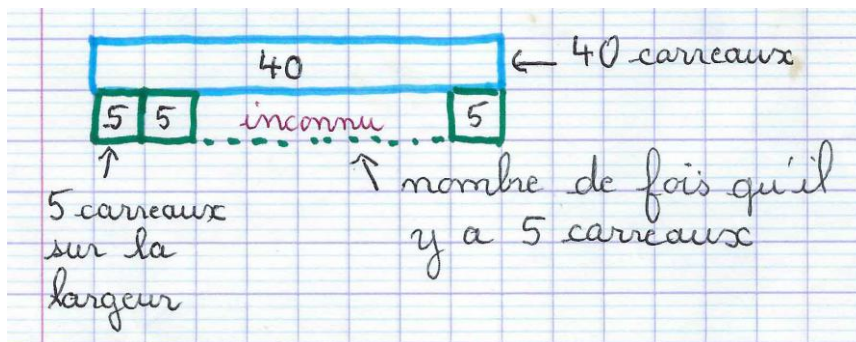 40 ← 40 carreaux
5 5 inconnu 5
5 carreaux
sur la
largeur
nombre de fois qu'il
y a 5 carreaux